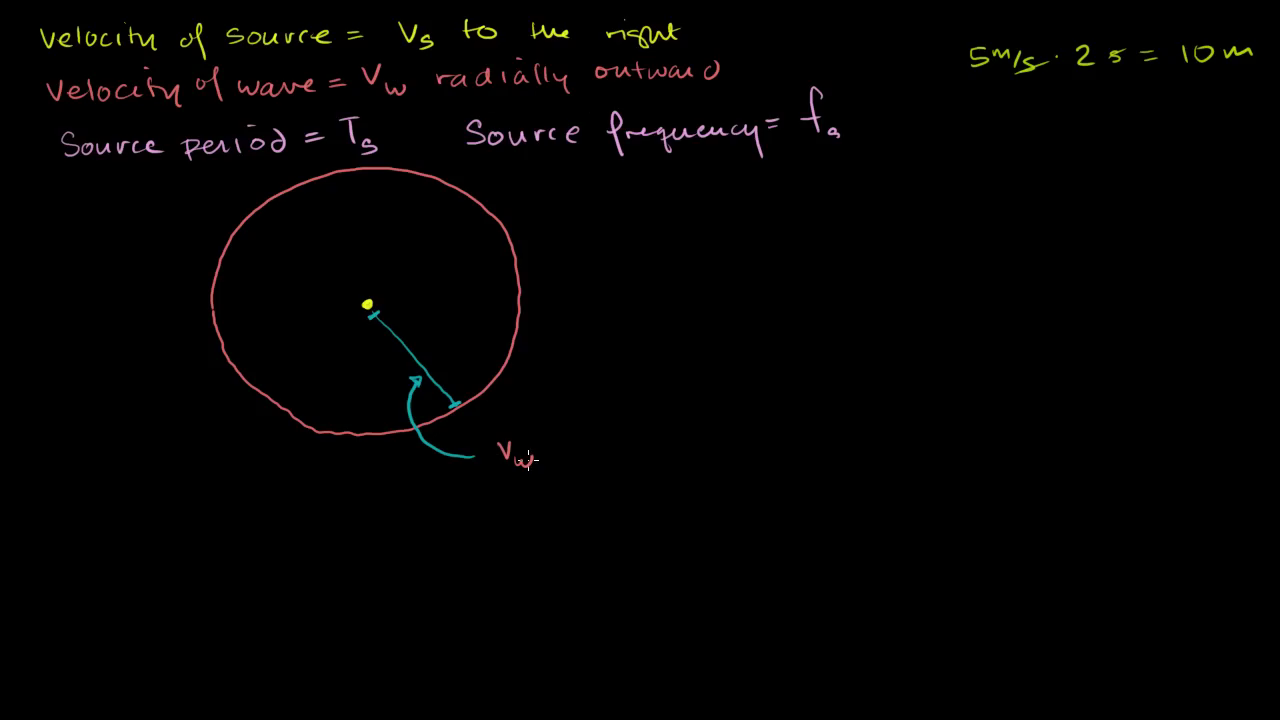 velocity of source = Vs to the right
5 m/s · 2 s = 10 m
velocity of wave = Vw radially outward
Source period = Ts
Source frequency = fs
Vw